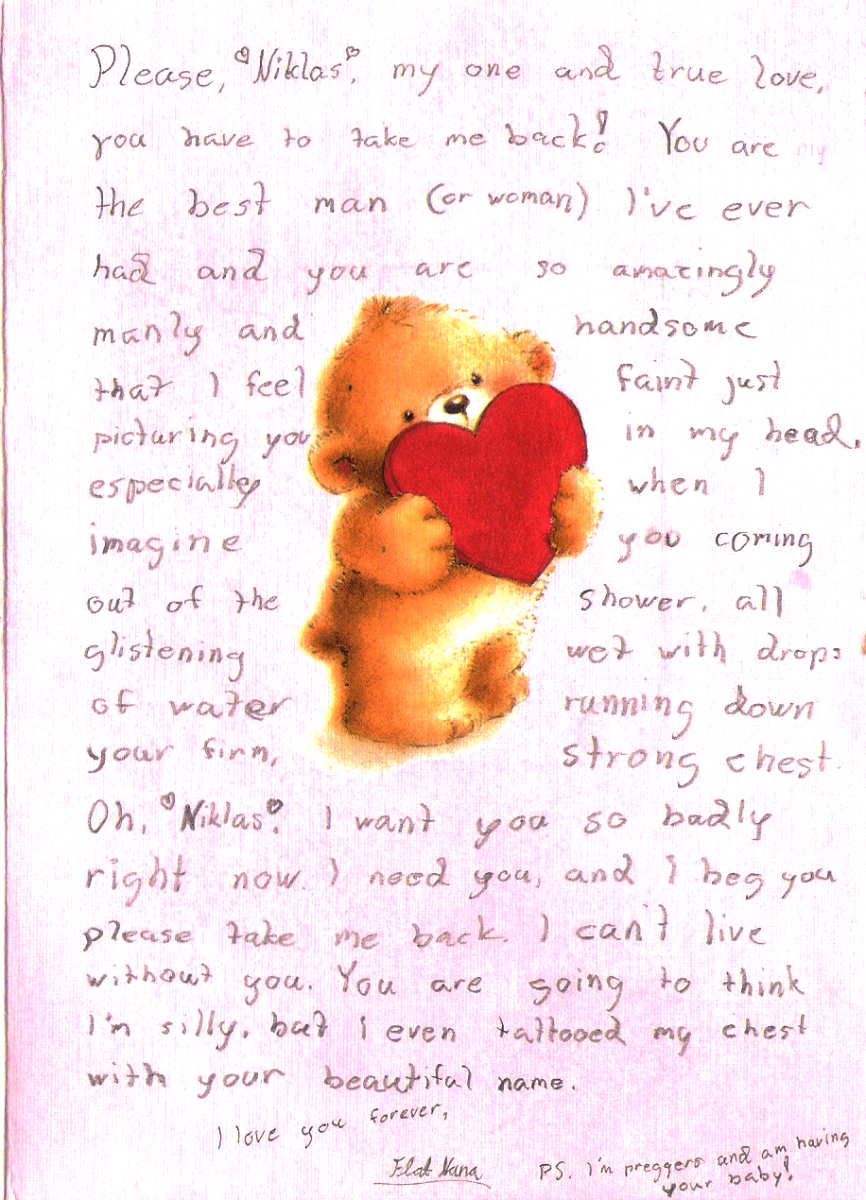 Please, "Niklas", my one and true love,
you have to take me back! You are my
the best man (or woman) I've ever
had and you are so amazingly
manly and handsome
that I feel faint just
picturing you in my head,
especially when I
imagine you coming
out of the shower, all
glistening wet with drops
of water running down
your firm, strong chest.
Oh, "Niklas", I want you so badly
right now. I need you, and I beg you
please take me back. I can't live
without you. You are going to think
I'm silly, but I even tattooed my chest
with your beautiful name.
I love you forever,
Nana
PS. I'm preggers and am having
your baby!